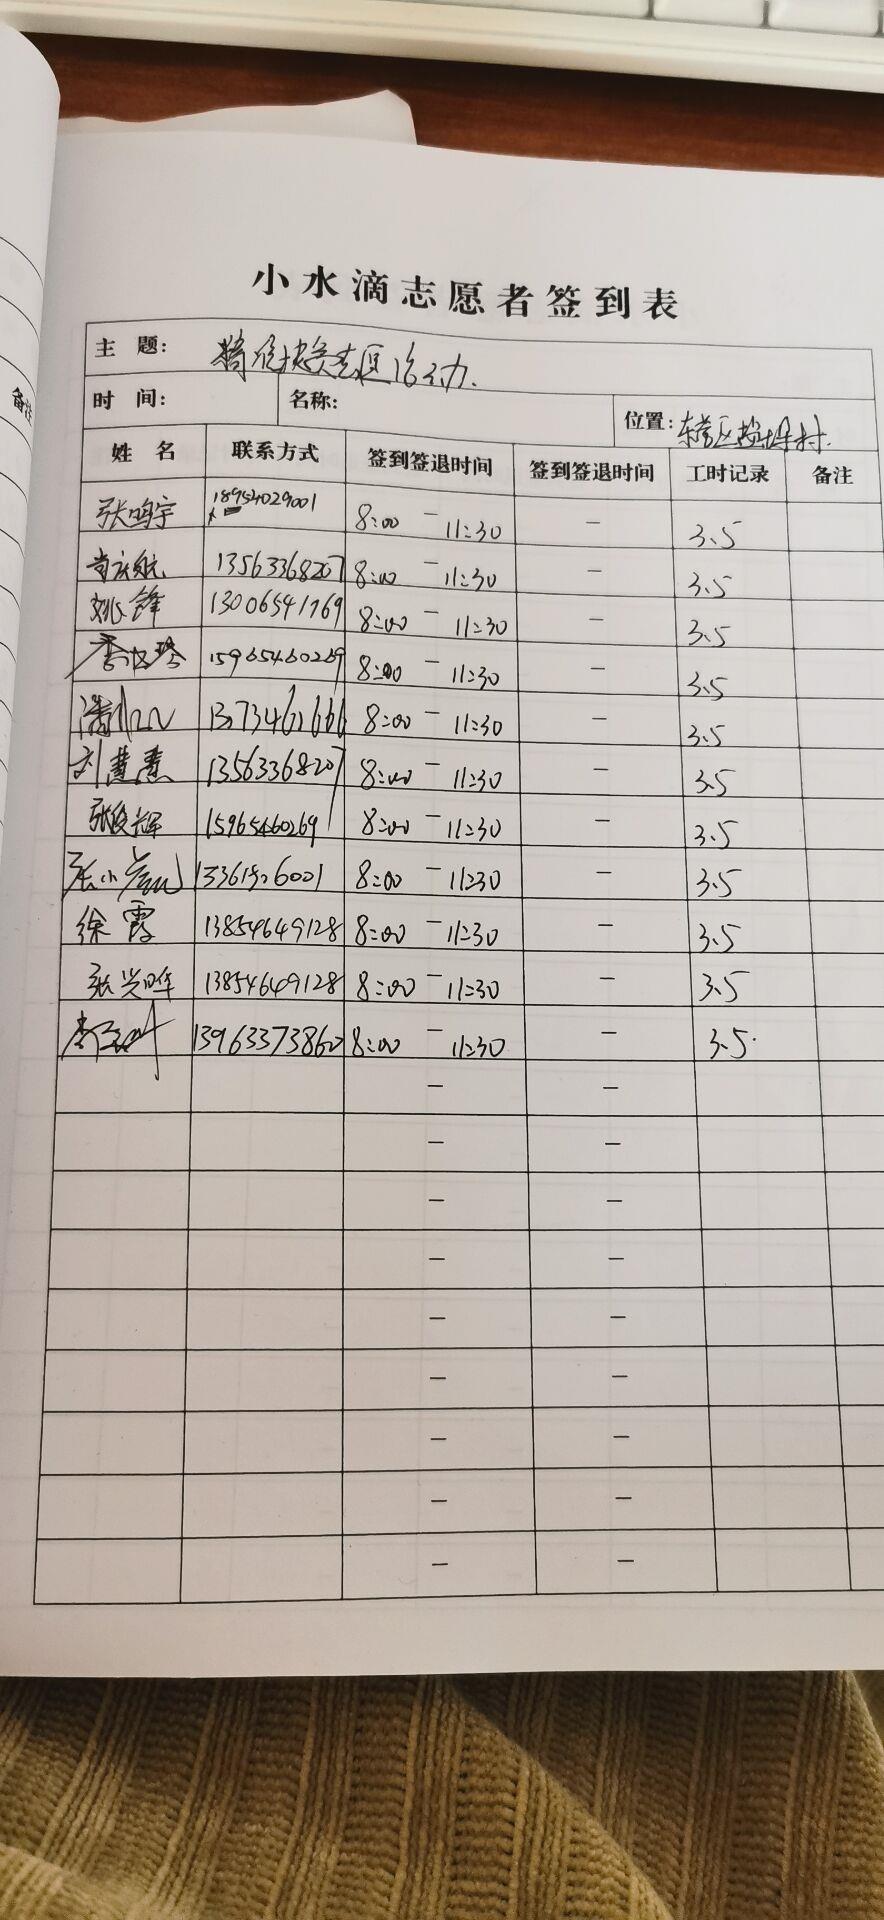 小水滴志愿者签到表
主 题: 活动.
时 间: 名称: 位置: 东营区 村.
姓 名 联系方式 签到签退时间 签到签退时间 工时记录 备注
张鸣宇 18954029001 8:00 — 11:30 — 3.5
13563368207 8:00 — 11:30 — 3.5
姚锋 13006541769 8:00 — 11:30 — 3.5
15965460269 8:00 — 11:30 — 3.5
潘 8:00 — 11:30 — 3.5
刘慧慧 13563368207 8:00 — 11:30 — 3.5
张俊辉 15965460269 8:00 — 11:30 — 3.5
张小 8:00 — 11:30 — 3.5
徐霞 13854649128 8:00 — 11:30 — 3.5
张兴晔 13854649128 8:00 — 11:30 — 3.5
李 13963373860 8:00 — 11:30 — 3.5
— —
— —
— —
— —
— —
— —
— —
— —
— —
备注